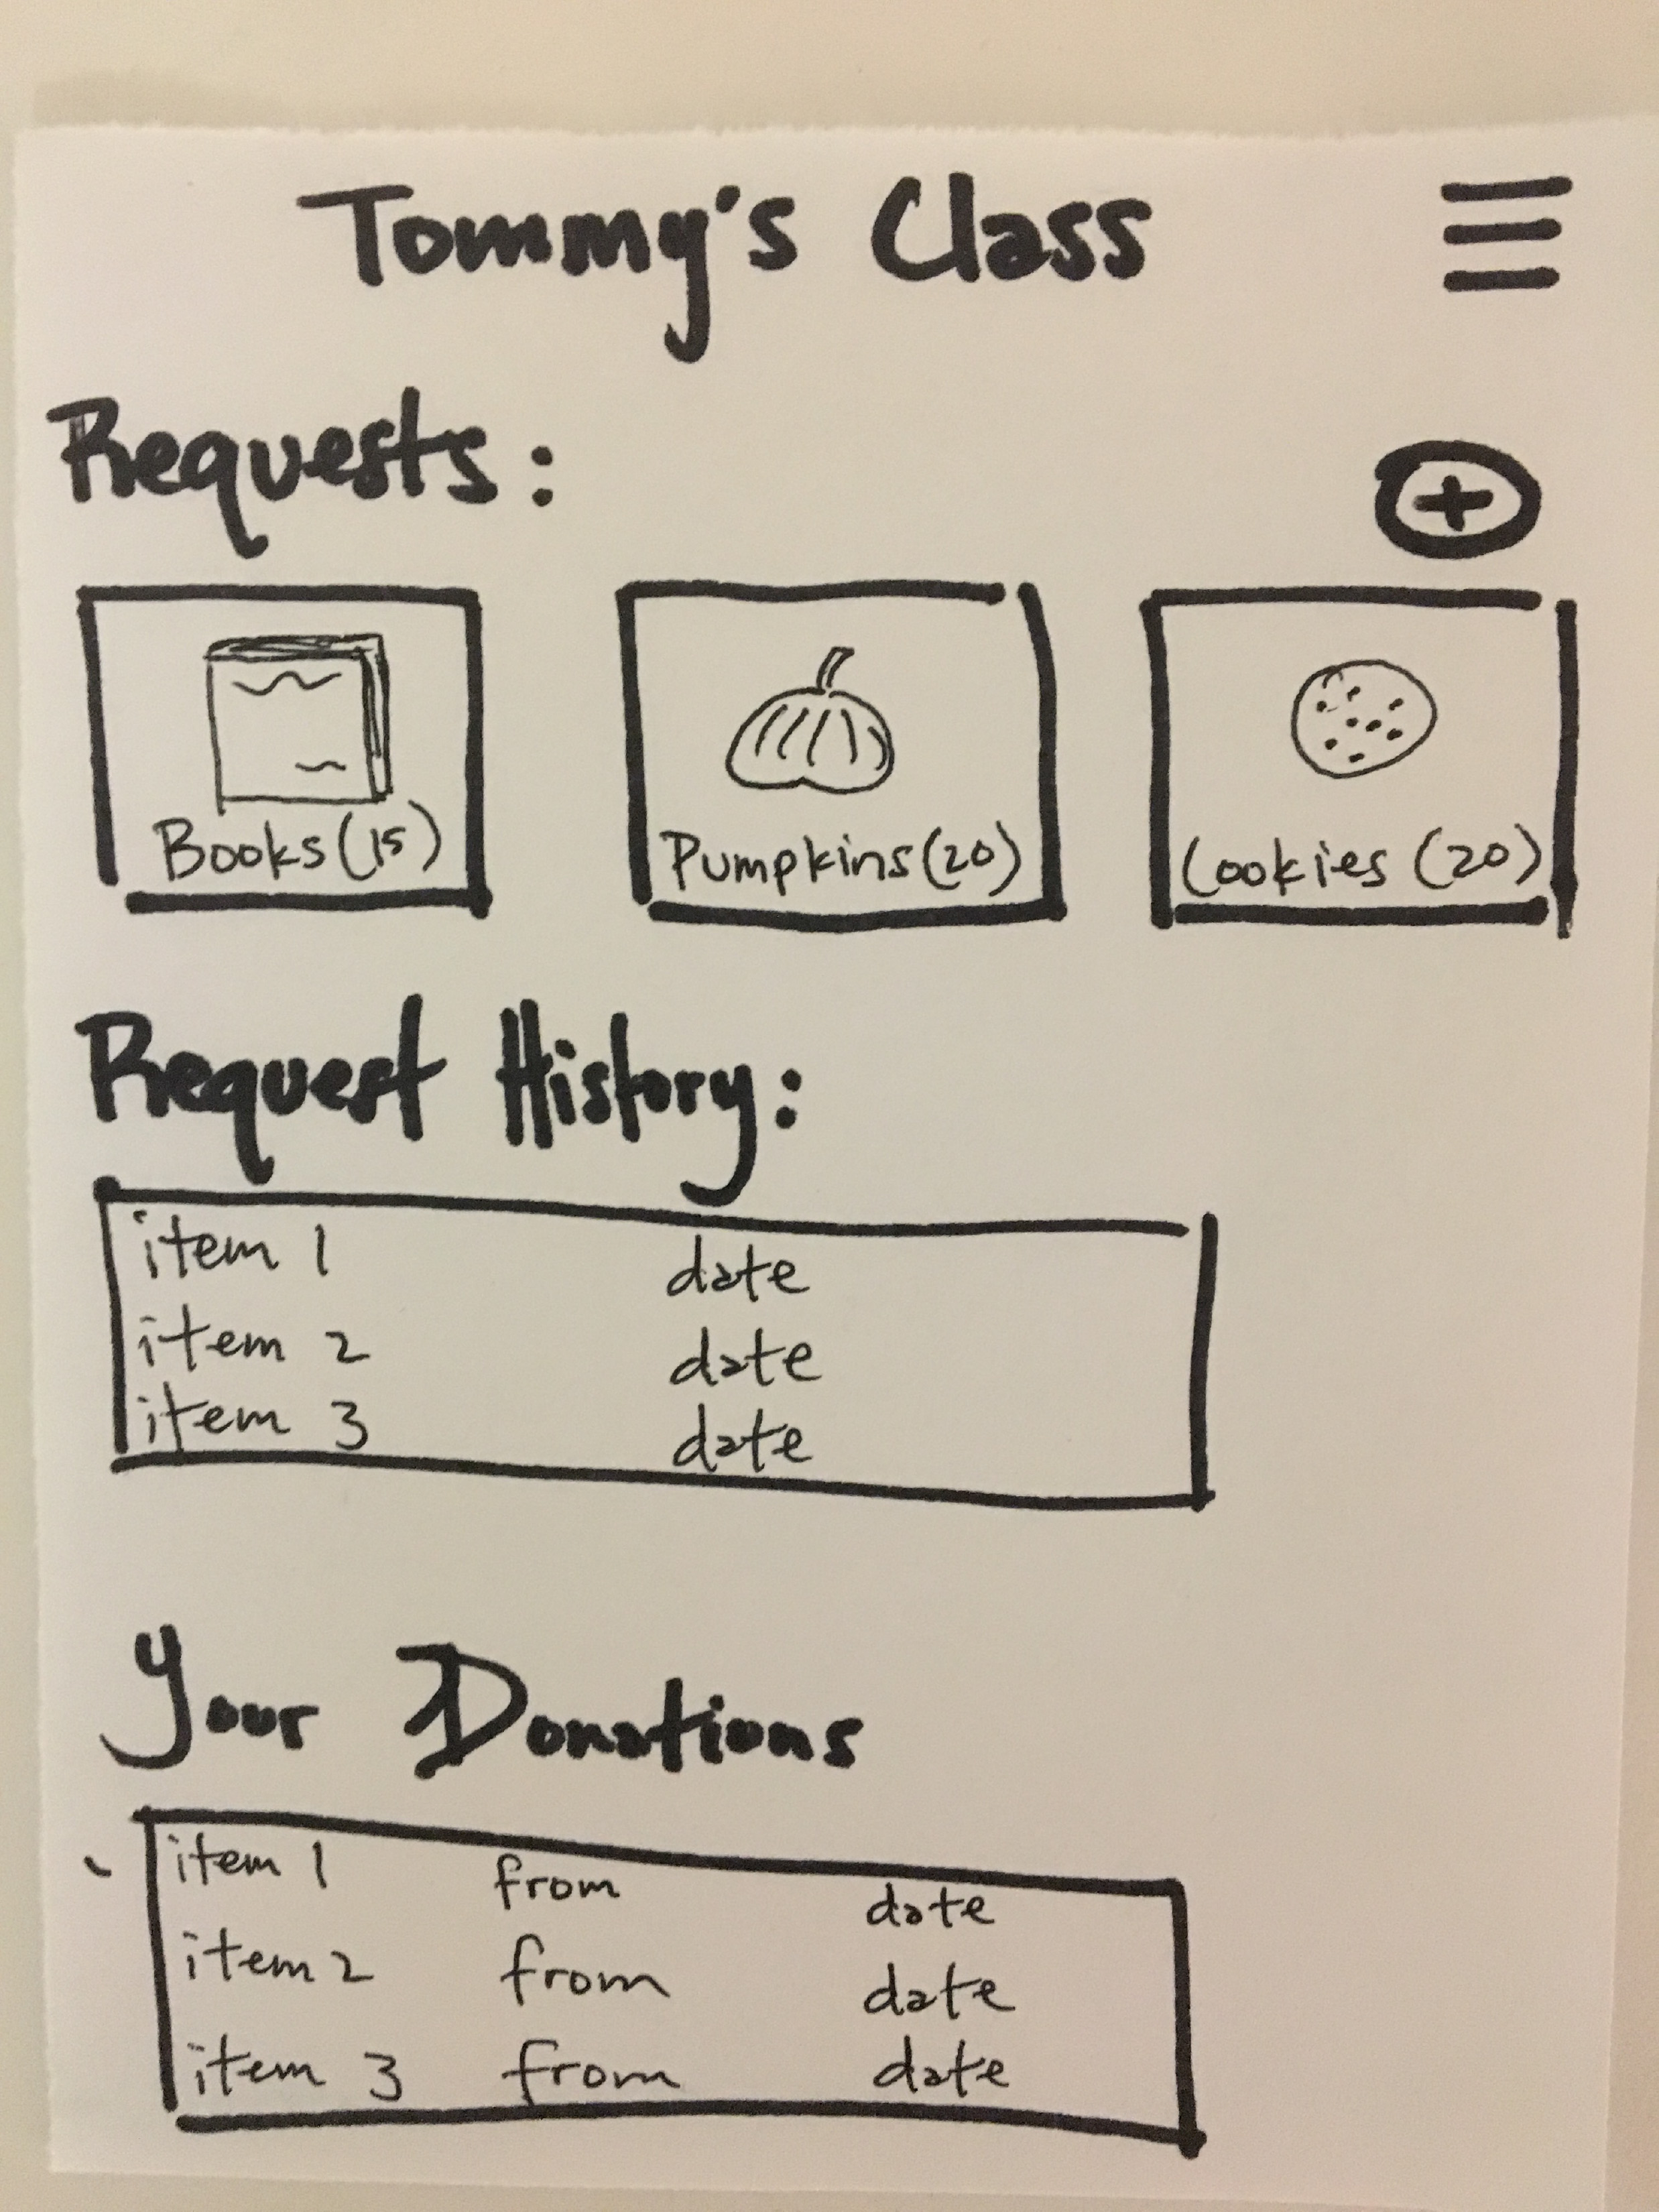 Tommy's Class
Requests:
Books (15)
Pumpkins (20)
Cookies (20)
Request History:
item 1 date
item 2 date
item 3 date
Your Donations
item 1 from date
item 2 from date
item 3 from date